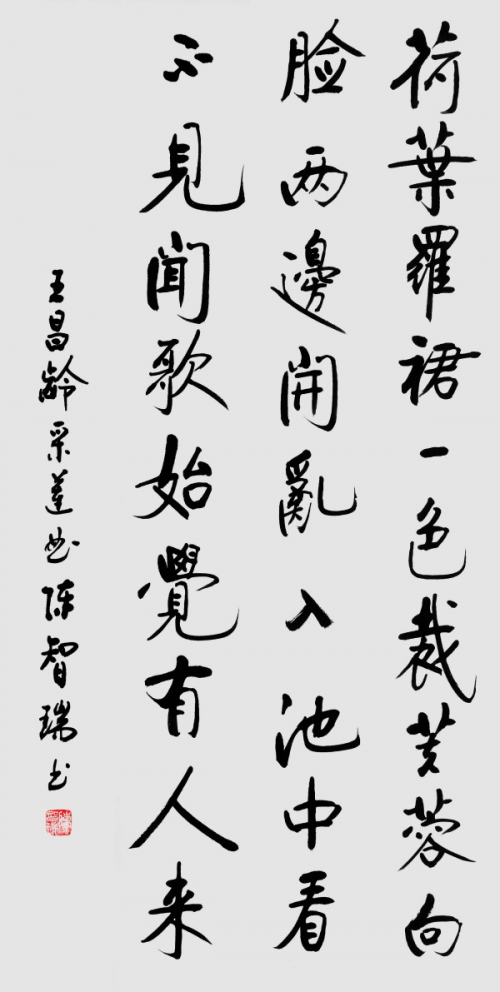 荷葉羅裙一色裁芙蓉向
脸两邊開亂入池中看
不見聞歌始覺有人来
王昌齡采蓮曲陈智瑞书